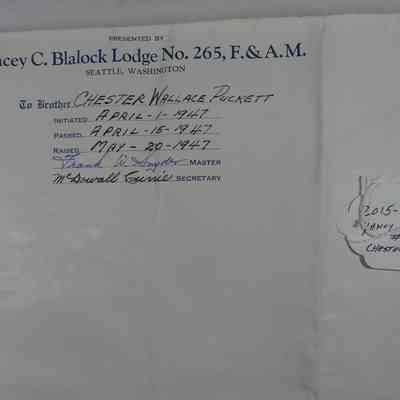 PRESENTED BY
cey C. Blalock Lodge No. 265, F. & A. M.
SEATTLE, WASHINGTON
To Brother CHESTER WALLACE PUCKETT
INITIATED APRIL-1-1947
PASSED APRIL-15-1947
RAISED MAY-20-1947
Frank W. Snyder MASTER
McDowall Currie SECRETARY
2015-
YANCY
#
CHESTE